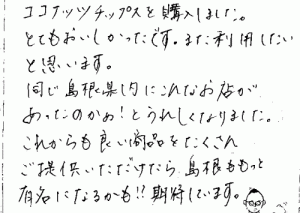 ココナッツチップスを購入しました。
とてもおいしかったです。また利用したい
と思います。
同じ島根県内にこんなお店が
あったのかぁ!とうれしくなりました。
これからも良い商品をたくさん
ご提供いただけたら、島根ももっと
有名になるかも!!期待しています。